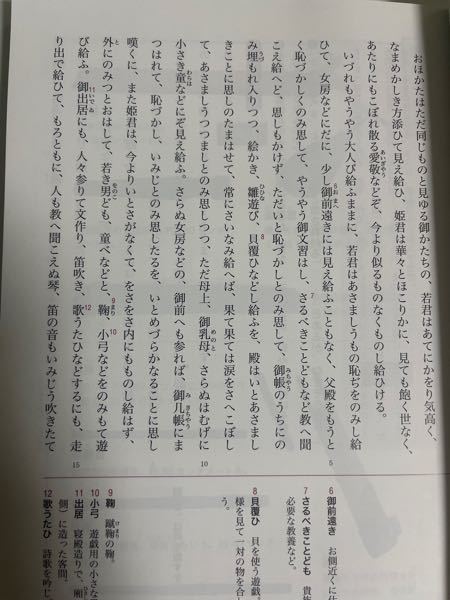 おほかたはただ同じものと見ゆる御かたちの、若君はあてにかをり気高く、
なまめかしき方添ひて見え給ひ、姫君は華々とほこりかに、見ても飽く世なく、
あたりにもこぼれ散る愛敬などぞ、今より似るものなくものし給ひける。
あいぎやう
いづれもやうやう大人び給ふままに、若君はあさましうもの恥ぢをのみし給
ひて、女房などにだに、少し御前遠きには見え給ふこともなく、父殿をもうと
おまへ
6
5
く恥づかしくのみ思して、やうやう御文習はし、さるべきことどもなど教へ聞
7
こえ給へど、思しもかけず、ただいと恥づかしとのみ思して、御帳のうちにの
みちやう
み埋もれ入りつつ、絵かき、雛遊び、貝覆ひなどし給ふを、殿はいとあさまし
うづ
ひひな
8
きことに思しのたまはせて、常にさいなみ給へば、果て果ては涙をさへこぼし
て、あさましうつつましとのみ思しつつ、ただ母上、御乳母、さらぬはむげに
めのと
10
小さき童などにぞ見え給ふ。さらぬ女房などの、御前へも参れば、御几帳にま
わらは
みきちやう
つはれて、恥づかし、いみじとのみ思したるを、いとめづらかなることに思し
嘆くに、また姫君は、今よりいとさがなくて、をさをさ内にもものし給はず、
外にのみつとおはして、若き男ども、童べなどと、鞠、小弓などをのみもて遊
と
をのこ
9
まり
10
び給ふ。御出居にも、人々参りて文作り、笛吹き、歌うたひなどするにも、走
11
いでゐ
12
15
り出で給ひて、もろともに、人も教へ聞こえぬ琴、笛の音もいみじう吹きたて
6 御前遠き
7 さるべきことども
必要な教養など。
8 貝覆ひ 貝を使う遊戯
様を見て一対の物を合
う。
9 鞠 蹴鞠の鞠。
けまり
10 小弓 遊戯用の小さな
11 出居 寝殿造りで、廂
側)に造った客間。
12 歌うたひ 詩歌を吟じ